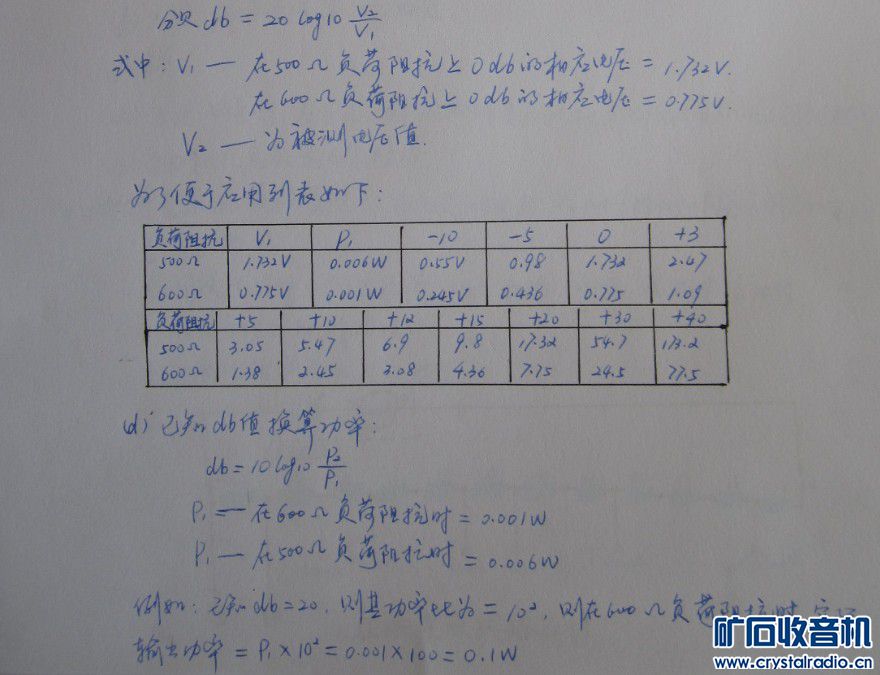 分贝 db = 20 log10 V2/V1
式中: V1 — 在500Ω负荷阻抗上0db的相应电压 = 1.732V.
在600Ω负荷阻抗上0db的相应电压 = 0.775V.
V2 — 为被测电压值.
为了便于应用列表如下:
负荷阻抗 V1 P1 -10 -5 0 +3
500Ω 1.732V 0.006W 0.55V 0.98 1.732 2.47
600Ω 0.775V 0.001W 0.245V 0.436 0.775 1.09
负荷阻抗 +5 +10 +12 +15 +20 +30 +40
500Ω 3.05 5.47 6.9 9.8 17.32 54.7 173.2
600Ω 1.38 2.45 3.08 4.36 7.75 24.5 77.5
(d) 已知db值换算功率:
db = 10 log10 P2/P1
P1 — 在600Ω负荷阻抗时 = 0.001W
P1 — 在500Ω负荷阻抗时 = 0.006W
例如: 已知db=20, 则其功率比为 = 10², 则在600Ω负荷阻抗时,
输出功率 = P1 × 10² = 0.001×100 = 0.1W
矿石收音机
www.crystalradio.cn